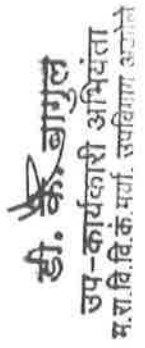 डी. के. बागुल
उप-कार्यकारी अभियंता
म.रा.वि.वि.कं.मर्या. उपविभाग